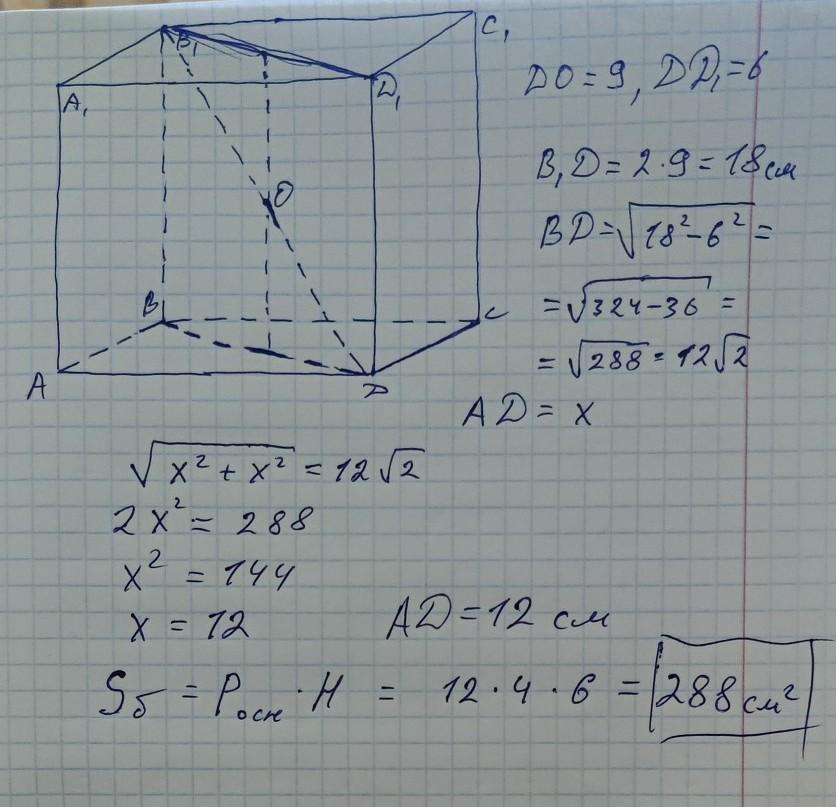 B₁
C₁
A₁
D₁
O
B
C
A
D
DO = 9, DD₁ = 6
B₁D = 2·9 = 18 см
BD = √(18² − 6²) =
= √(324 − 36) =
= √288 = 12√2
AD = x
√(x² + x²) = 12√2
2x² = 288
x² = 144
x = 12 AD = 12 см
Sб = Pосн · H = 12 · 4 · 6 = 288 см²